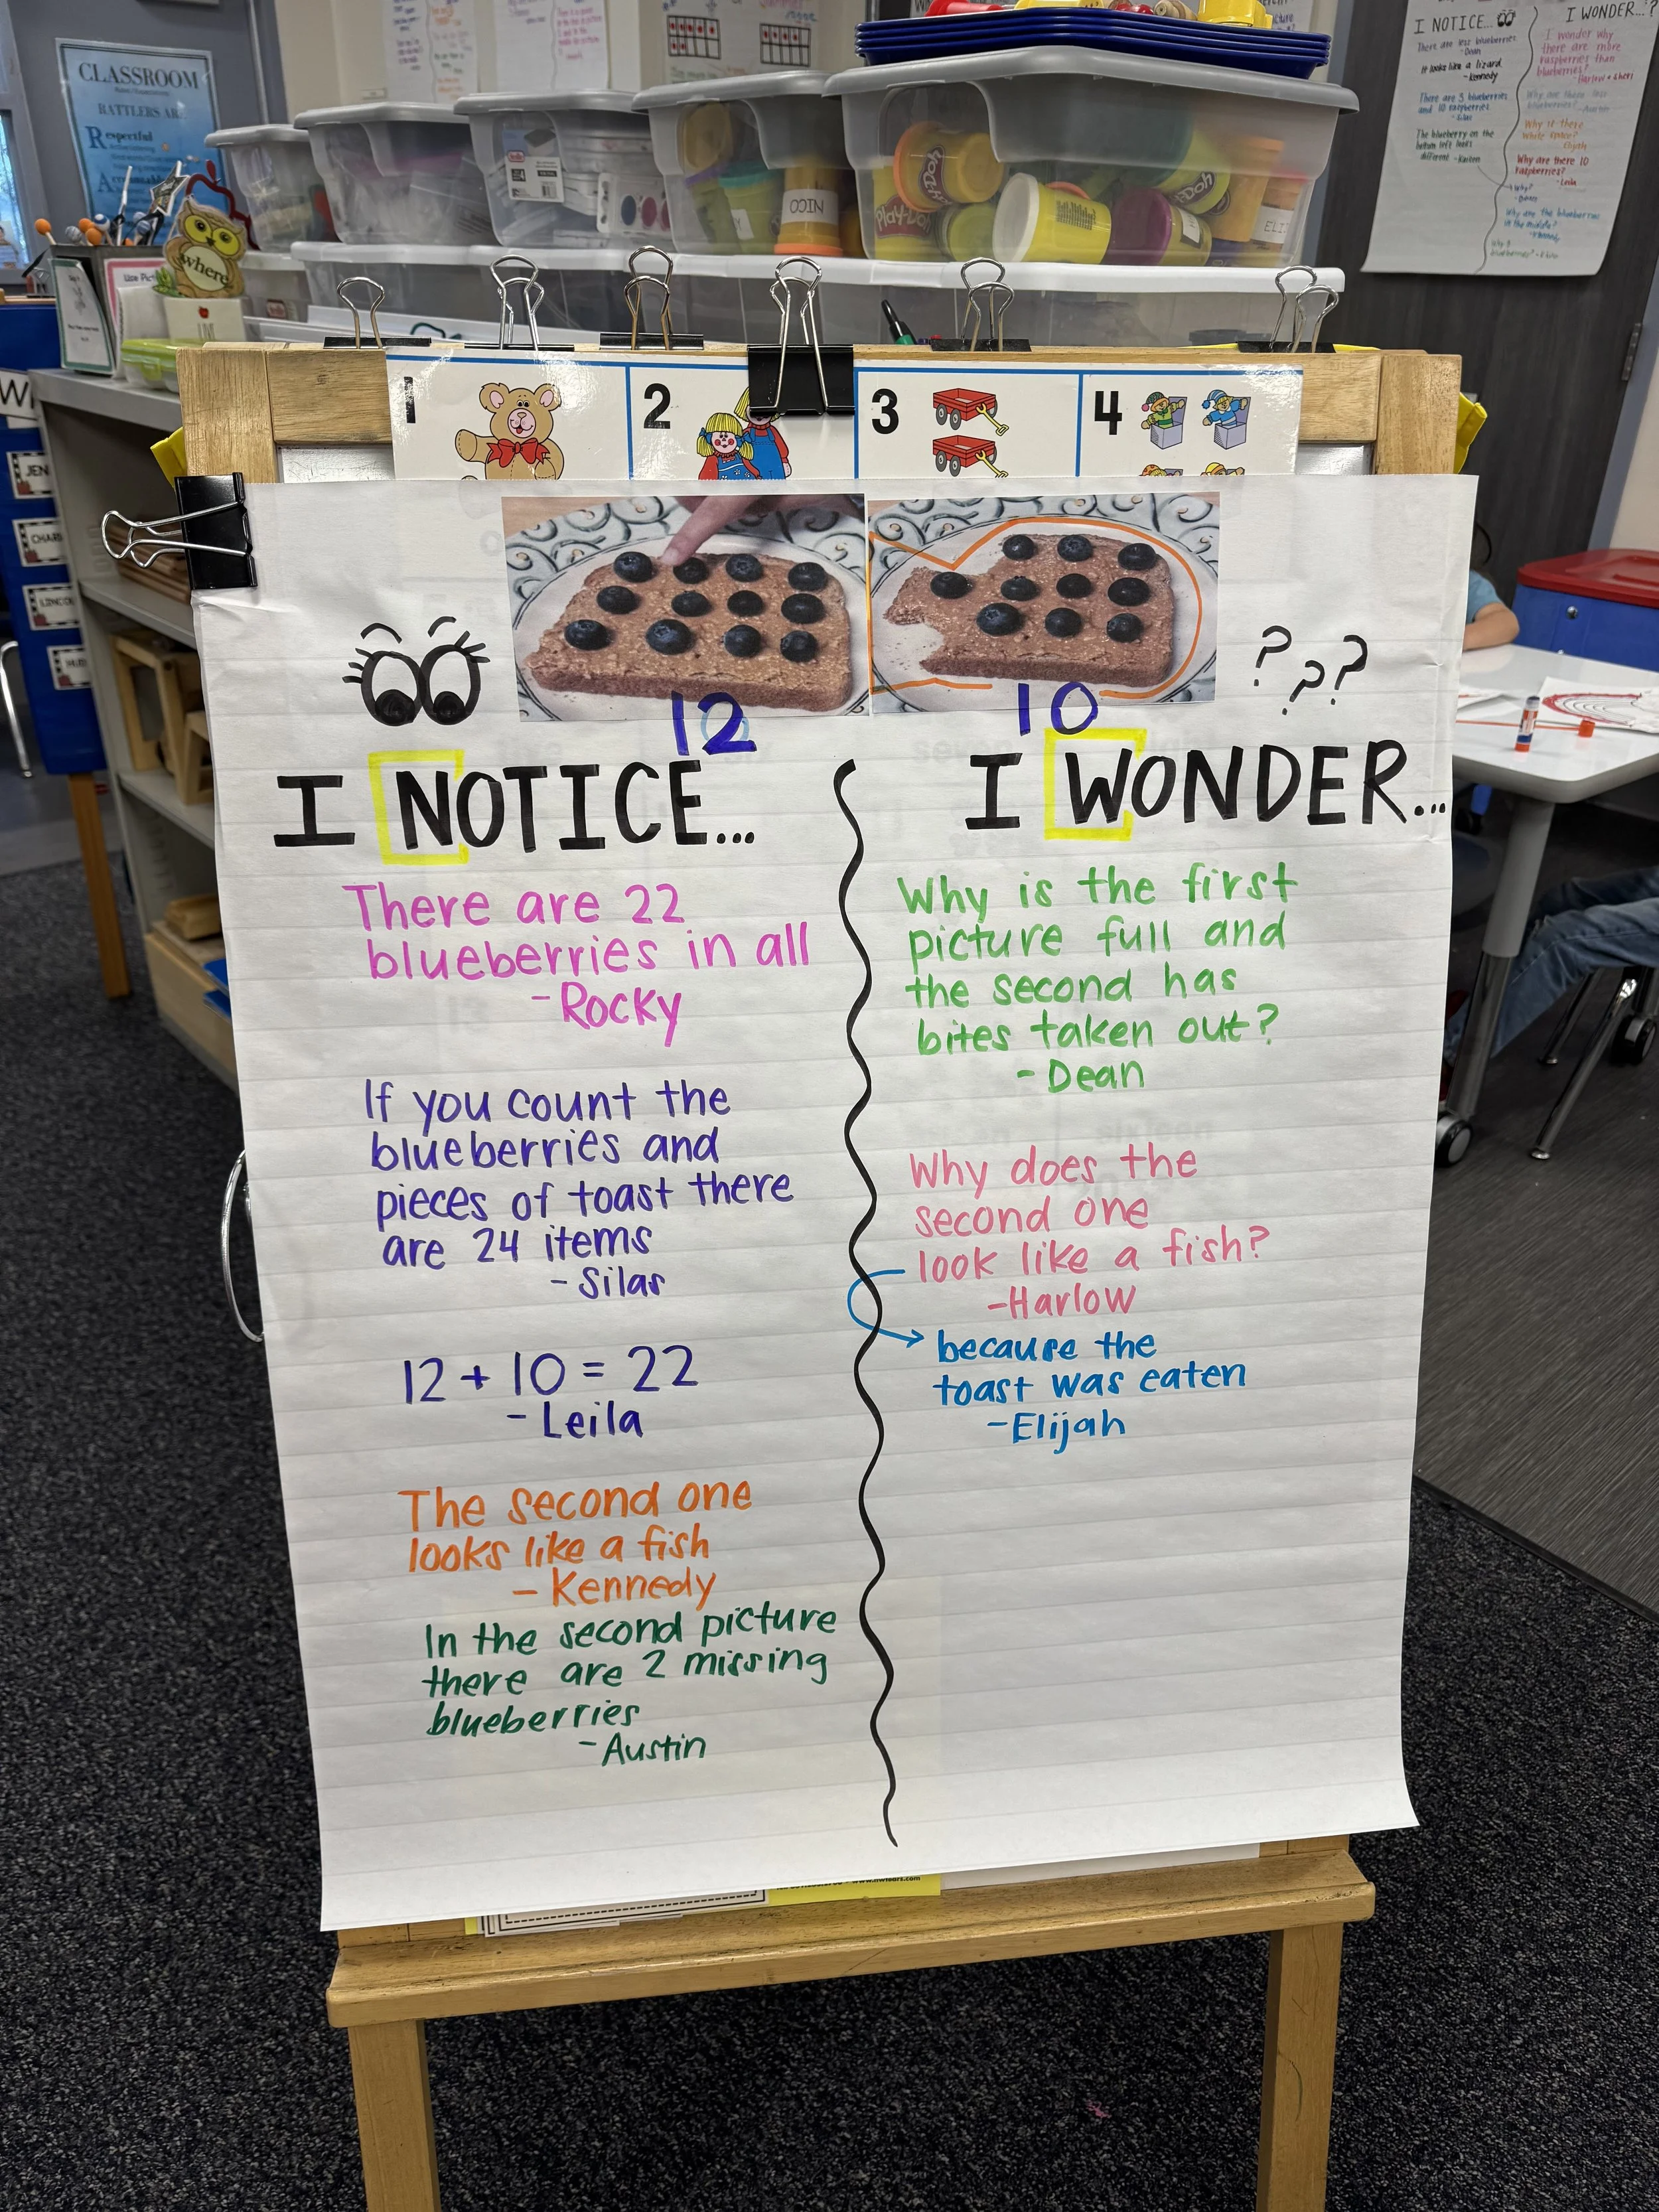 CLASSROOM
RATTLERS ARE
Respectful
where
Play-Doh
NICO
I NOTICE...
There are less blueberries
-Dean
It looks like a lizard
-Kennedy
There are 3 blueberries
and 10 raspberries
-Silas
The blueberry on the
bottom left looks
different
I WONDER...?
I wonder why
there are more
raspberries than
blueberries?
Why are there less
blueberries? -Austin
Why is there
white space?
Elijah
Why are there 10
raspberries?
-Leila
Why?
Why are the blueberries
in the middle?
1
2
3
4
12
10
? ? ?
I NOTICE...
There are 22
blueberries in all
-Rocky
If you count the
blueberries and
pieces of toast there
are 24 items
-Silas
12 + 10 = 22
-Leila
The second one
looks like a fish
-Kennedy
In the second picture
there are 2 missing
blueberries
-Austin
I WONDER...
Why is the first
picture full and
the second has
bites taken out?
-Dean
Why does the
second one
look like a fish?
-Harlow
because the
toast was eaten
-Elijah